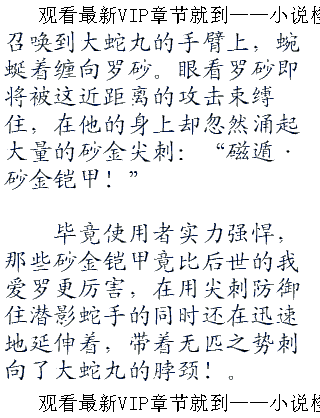 观看最新VIP章节就到——小说
召唤到大蛇丸的手臂上，蜿
蜒着缠向罗砂。眼看罗砂即
将被这近距离的攻击束缚
住，在他的身上却忽然涌起
大量的砂金尖刺：“磁遁·
砂金铠甲！”
毕竟使用者实力强悍，
那些砂金铠甲竟比后世的我
爱罗更厉害，在用尖刺防御
住潜影蛇手的同时还在迅速
地延伸着，带着无匹之势刺
向了大蛇丸的脖颈！。
观看最新VIP章节就到——小说